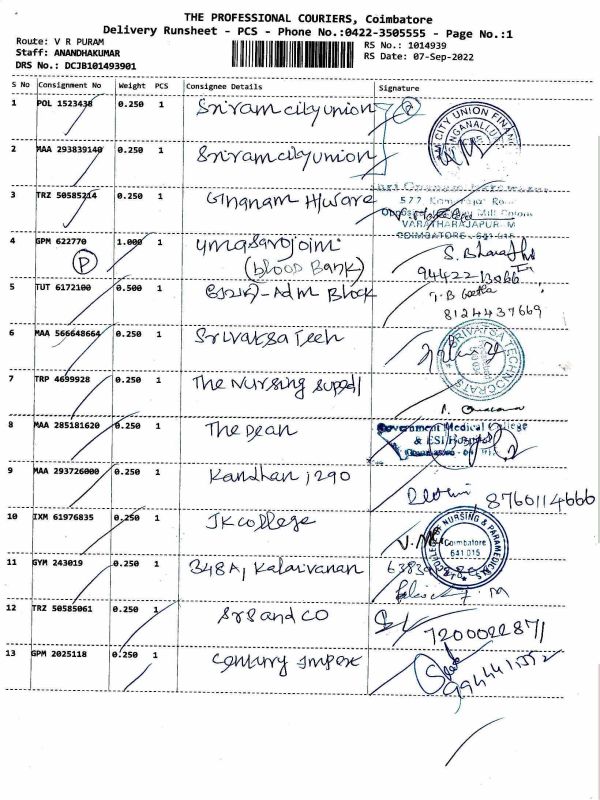 THE PROFESSIONAL COURIERS, Coimbatore
Delivery Runsheet - PCS - Phone No.:0422-3505555 - Page No.:1
Route: V R PURAM
Staff: ANANDHAKUMAR
DRS No.: DCJB101493901
RS No.: 1014939
RS Date: 07-Sep-2022
S No Consignment No Weight PCS Consignee Details Signature
1 POL 1523438 0.250 1 Sriram city union 2
CITY UNION FINAN
2 MAA 293839140 0.250 1 Sriram city union
3 TRZ 50585214 0.250 1 Gnanam H/ware
577, Kamarajar Road
VARATHARAJAPURAM
COIMBATORE - 641 015
4 GPM 622770 1.000 1 umasarojoim
(blood Bank)
P
S. Bharathi
5 TUT 6172100 0.500 1 Adm Block
T.B Geetha
8124437669
6 MAA 566648664 0.250 1 Srivatsa Tech
SRIVATSA TECHNOCRATS
7 TRP 4699928 0.250 1 The Nursing suped/
8 MAA 285181620 0.250 1 The Dean
Government Medical College
& ESI Hospital
9 MAA 293726000 0.250 1 Kandhan, 290
8760114666
10 IXM 61976835 0.250 1 JK college
V.M
COLLEGE OF NURSING & PARAMEDICALS
Coimbatore
641 015
11 GYM 243019 0.250 1 348A, Kalaivanan
12 TRZ 50585061 0.250 1 SrS and CO
7200022871
13 GPM 2025118 0.250 1 Century Impex